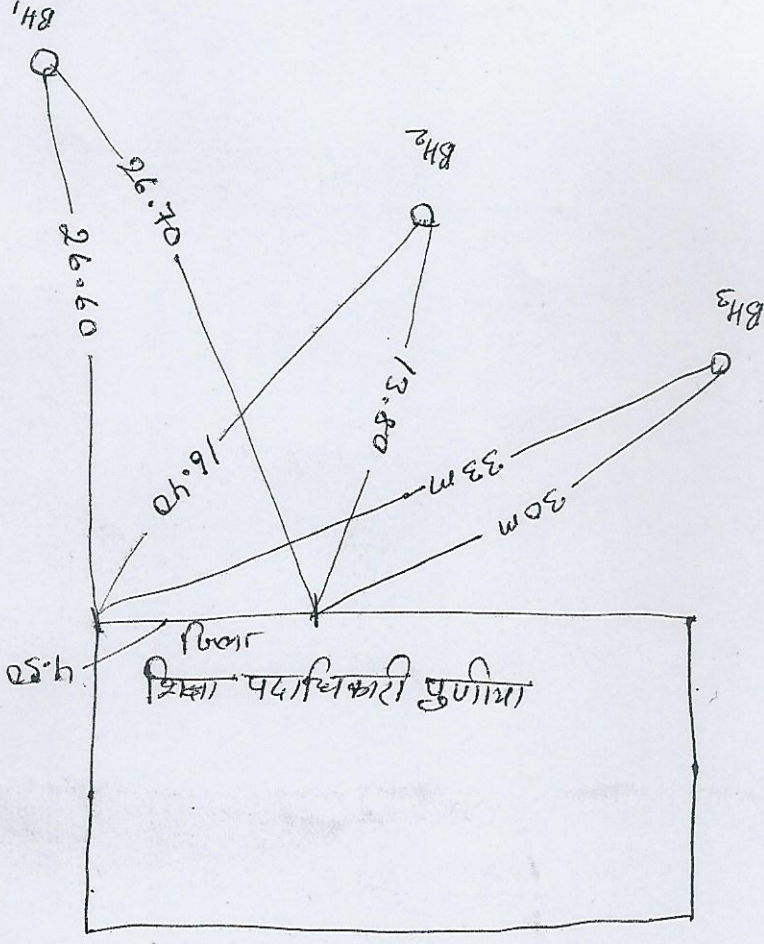 BH1
BH2
BH3
26.60
26.70
16.40
13.80
33 m
30 m
4.50
जिला
शिक्षा पदाधिकारी पुर्णीया